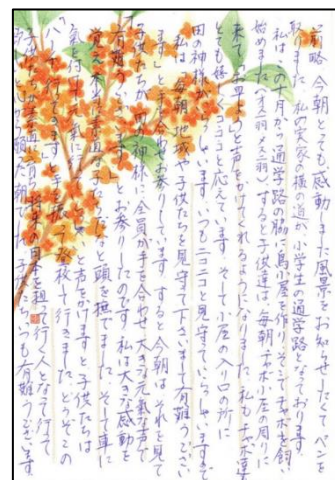 前略 今朝とても感動しました風景をお知せしたくてペンを
取りました。私の実家の横の道が小学生の通学路となっております。
私は 十月から通学路の脇に鳥小屋を作り そしてチャボを飼い
始めました(オス一羽メス二羽)すると子供達は毎朝チャボ小屋の周りに
来て と声をかけてくれるようになりました 私もチャボ達も
とても嬉しく コココと応えています。そして小屋の入り口の所に
田の神様が いらっしゃいます。いつもニコニコと見守っていらっしゃいますので
私は「毎朝 地域や子供たちを見守って下さいまして有難うござい
ます」と手を合わせお参りしています。すると今朝は それを見て
子供たちが田の神様に全員が手を合わせ 大きな元気な声で
「有難うございます」とお参りしたのです 私は大きな感動を
覚え 頭を撫でました そして車に
気を付けて と声をかけますと子供たちは
「ハイ行ってきます」と手を振って登校して行きました どうぞこの
子供たちが 将来の日本を担って行く人になって行って
いつも有難うございます